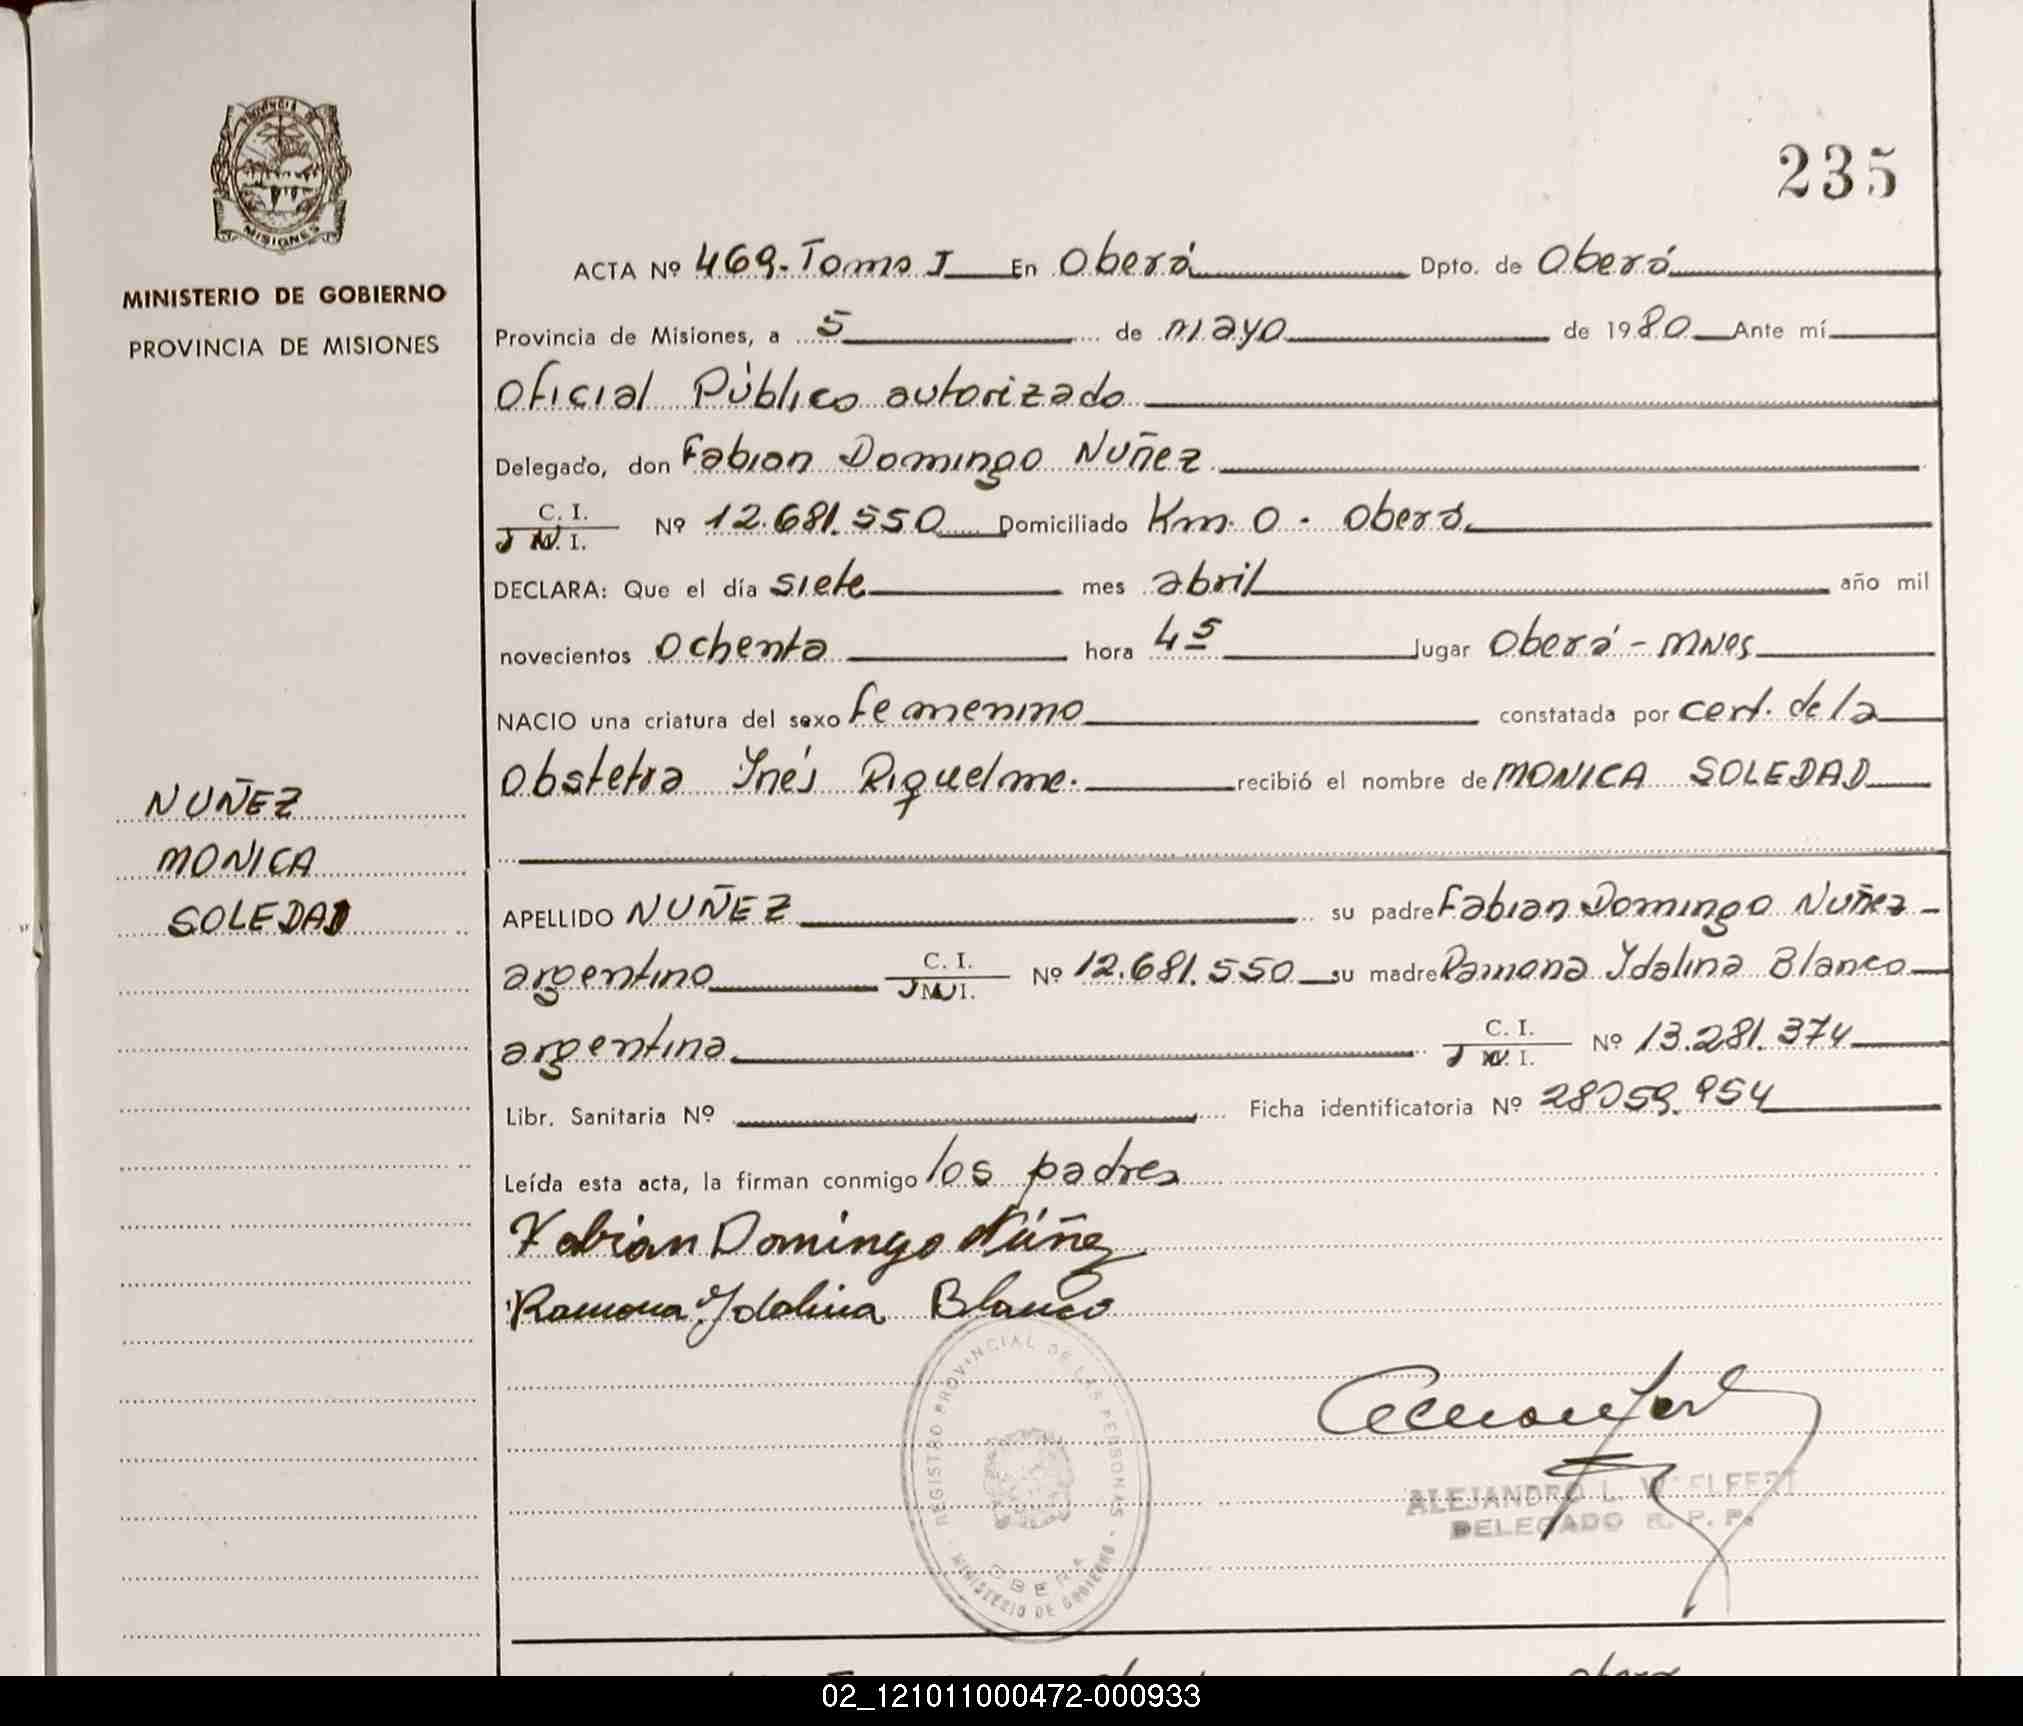 PROVINCIA DE
MISIONES
MINISTERIO DE GOBIERNO
PROVINCIA DE MISIONES
235
ACTA Nº 469-Tomo I En Oberá Dpto. de Oberá
Provincia de Misiones, a 5 de mayo de 1980 Ante mí
Oficial Público autorizado
Delegado, don Fabian Domingo Nuñez
C. I.
Nº 12.681.550 Domiciliado Km. 0 - Oberá
DECLARA: Que el día siete mes abril año mil
novecientos ochenta hora 4 5 lugar Oberá - Mnes
NACIO una criatura del sexo femenino constatada por cert. de la
Obstetra Ynés Riquelme. recibió el nombre de MONICA SOLEDAD
NUÑEZ
MONICA
SOLEDAD
APELLIDO NUÑEZ su padre Fabian Domingo Nuñez -
argentino C. I. Nº 12.681.550 su madre Ramona Ydalina Blanco
argentina C. I. Nº 13.281.374
Libr. Sanitaria Nº Ficha identificatoria Nº 28059.954
Leída esta acta, la firman conmigo los padres
Fabián Domingo Núñez
Ramona Ydalina Blanco
REGISTRO PROVINCIAL DE LAS PERSONAS - MINISTERIO DE GOBIERNO
OBERA
ALEJANDRO L.
DELEGADO R. P. P.
02_121011000472-000933